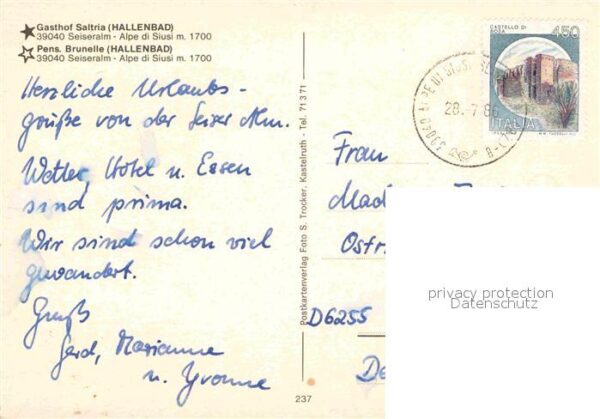 Gasthof Saltria (HALLENBAD)
39040 Seiseralm - Alpe di Siusi m. 1700
Pens. Brunelle (HALLENBAD)
39040 Seiseralm - Alpe di Siusi m. 1700
Herzliche Urlaubs-
grüße von der Seiser Alm.
Wetter, Hotel u. Essen
sind prima.
Wir sind schon viel
gewandert.
Gruß
Gerd, Marianne
u. Yvonne
237
Postkartenverlag Foto S. Trocker, Kastelruth - Tel. 71371
CASTELLO DI
ROSA
450
ITALIA
39040 ALPE DI SIUSI
28.-7.86
Frau
D6255
privacy protection
Datenschutz